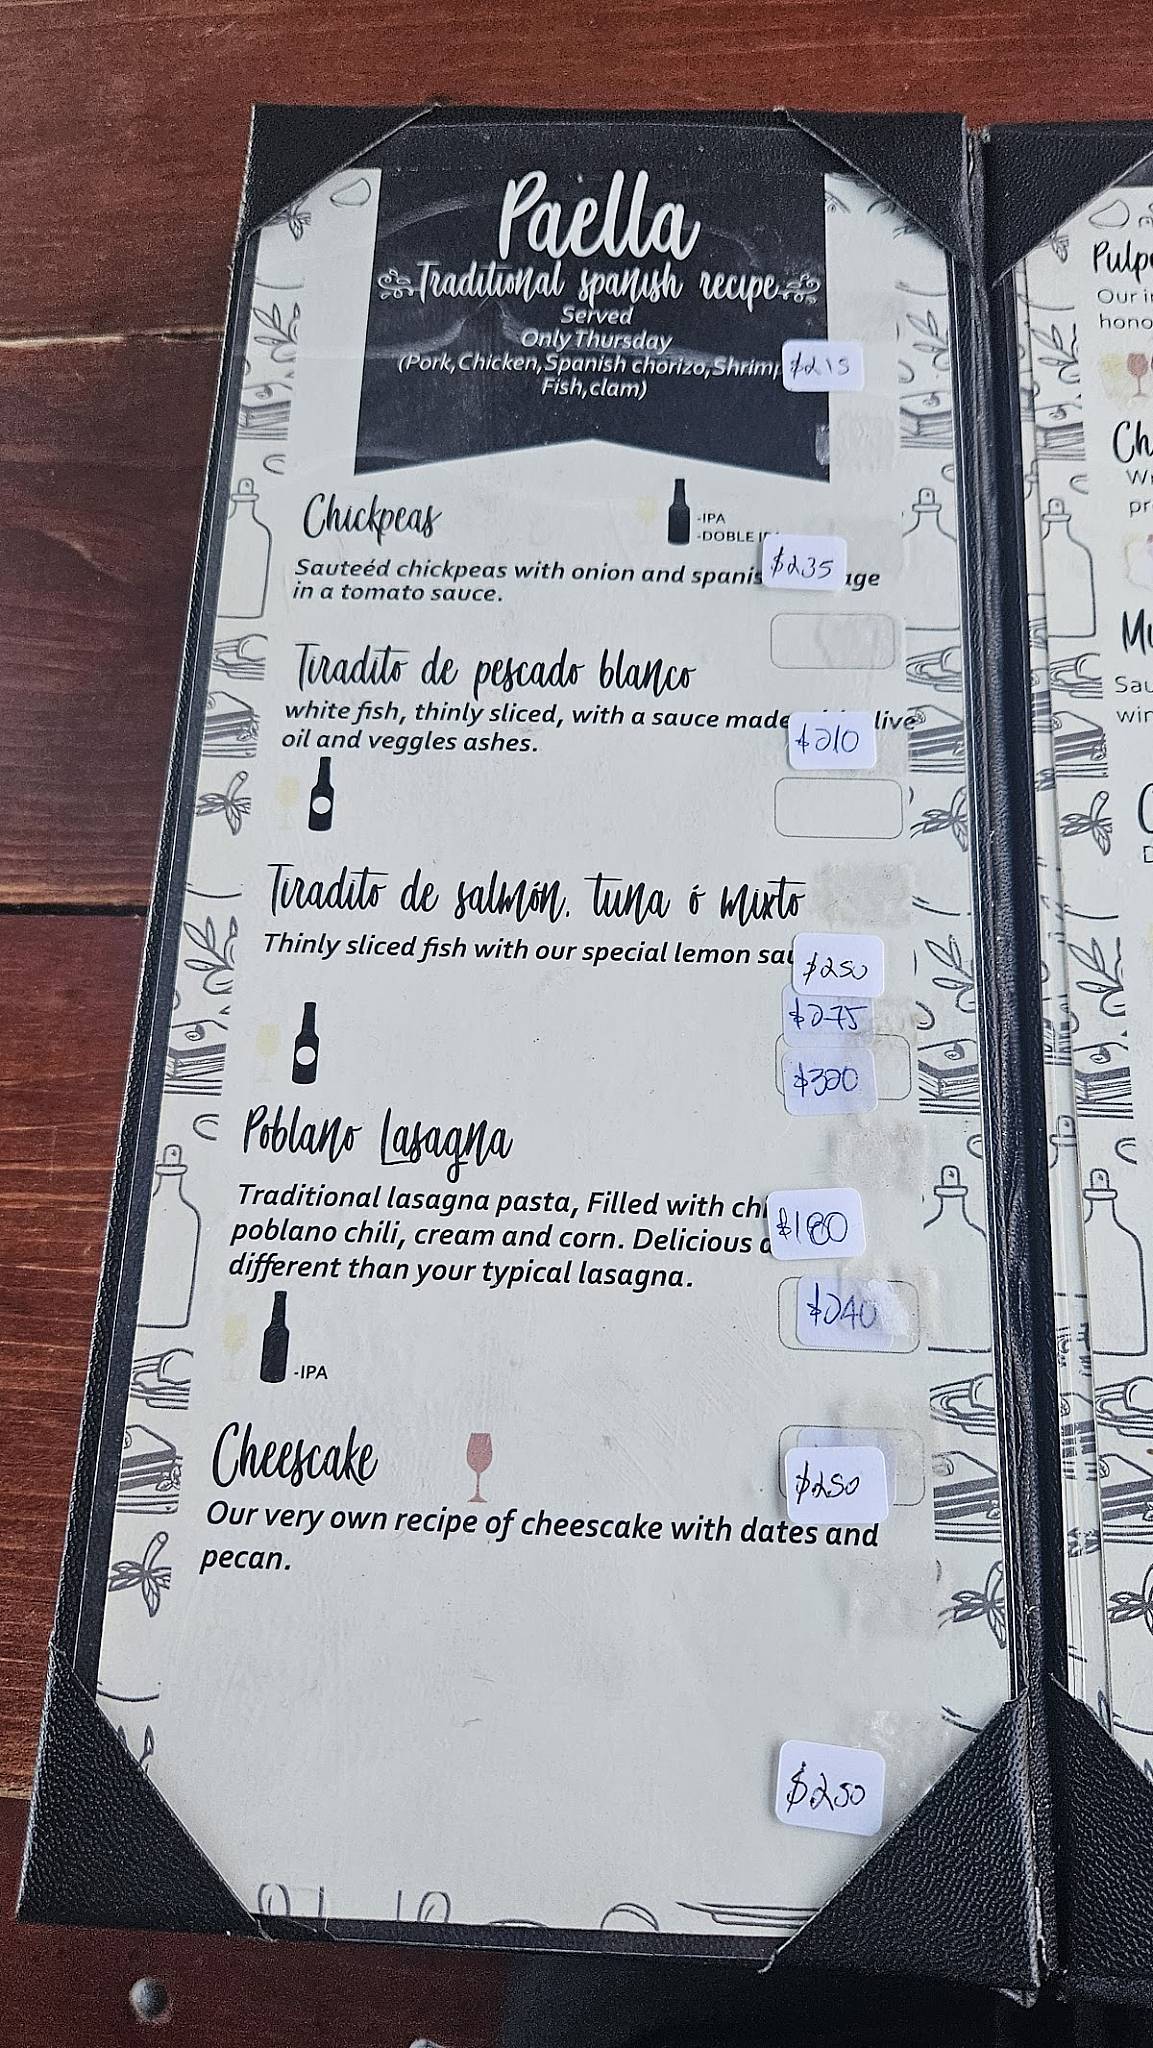 Paella
Traditional spanish recipe
Served
Only Thursday
(Pork,Chicken,Spanish chorizo,Shrimp
Fish,clam)
$215
Chickpeas
-IPA
-DOBLE
$235
Sauteéd chickpeas with onion and spanis age
in a tomato sauce.
Tiradito de pescado blanco
white fish, thinly sliced, with a sauce made live
oil and veggles ashes.
$210
Tiradito de salmón, tuna ó mixto
Thinly sliced fish with our special lemon sau
$250
$275
$300
Poblano Lasagna
Traditional lasagna pasta, Filled with chi
poblano chíli, cream and corn. Delicious
different than your typical lasagna.
$180
$240
-IPA
Cheescake
$250
Our very own recipe of cheescake with dates and
pecan.
$250
Pulp
Our i
hono
Ch
W
pr
Mu
Sau
win